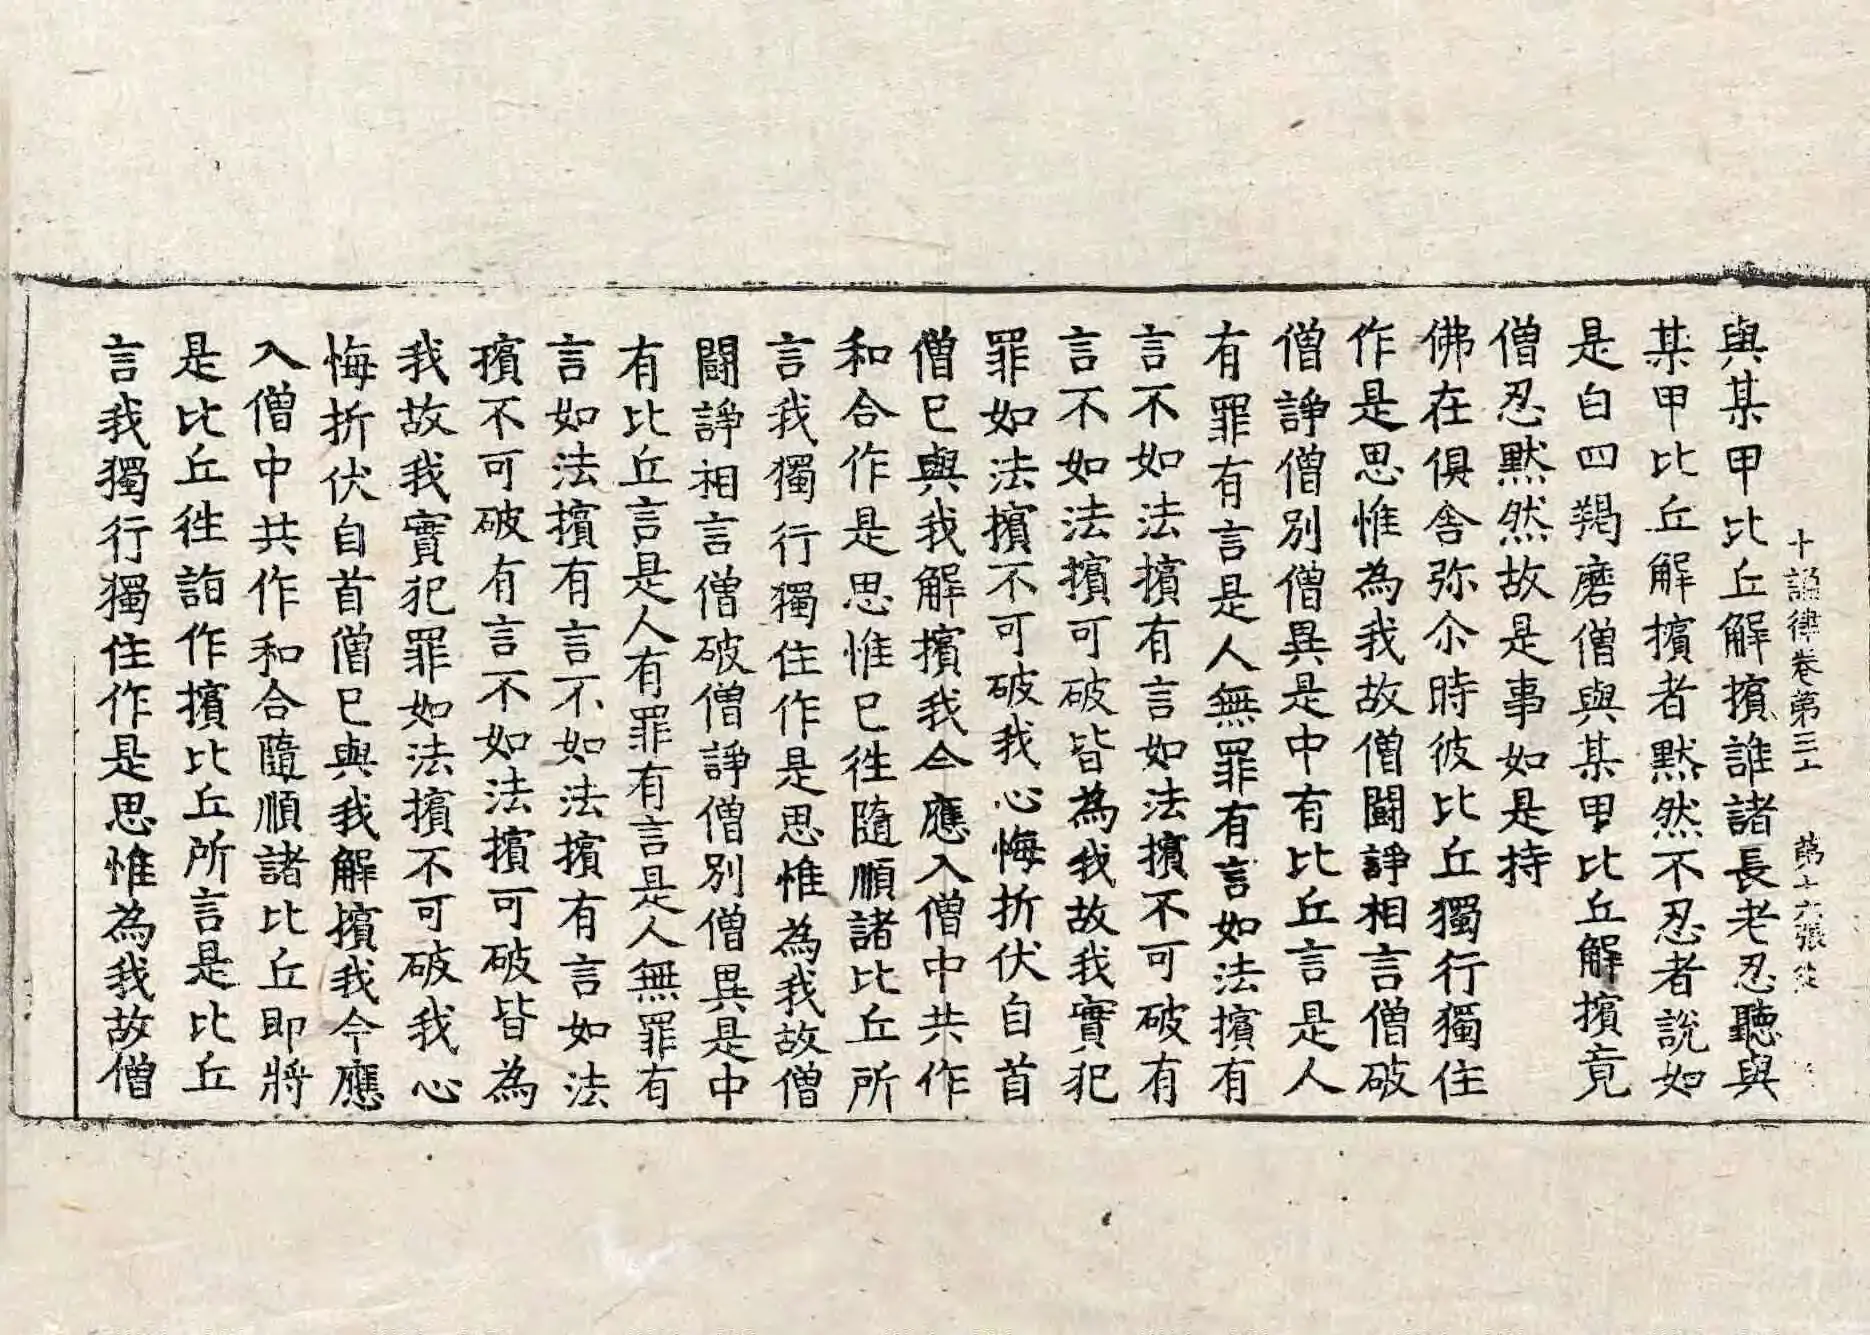 十誦律卷第三十 第十六張
與某甲比丘解擯誰諸長老忍聽與
某甲比丘解擯者默然不忍者說如
是白四羯磨僧與某甲比丘解擯竟
僧忍默然故是事如是持
佛在俱舍弥尒時彼比丘獨行獨住
作是思惟為我故僧鬪諍相言僧破
僧諍僧別僧異是中有比丘言是人
有罪有言是人無罪有言如法擯有
言不如法擯有言如法擯不可破有
言不如法擯可破皆為我故我實犯
罪如法擯不可破我心悔折伏自首
僧已與我解擯我今應入僧中共作
和合作是思惟已往隨順諸比丘所
言我獨行獨住作是思惟為我故僧
鬪諍相言僧破僧諍僧別僧異是中
有比丘言是人有罪有言是人無罪有
言如法擯有言不如法擯有言如法
擯不可破有言不如法擯可破皆為
我故我實犯罪如法擯不可破我心
悔折伏自首僧已與我解擯我今應
入僧中共作和合隨順諸比丘即將
是比丘往詣作擯比丘所言是比丘
言我獨行獨住作是思惟為我故僧